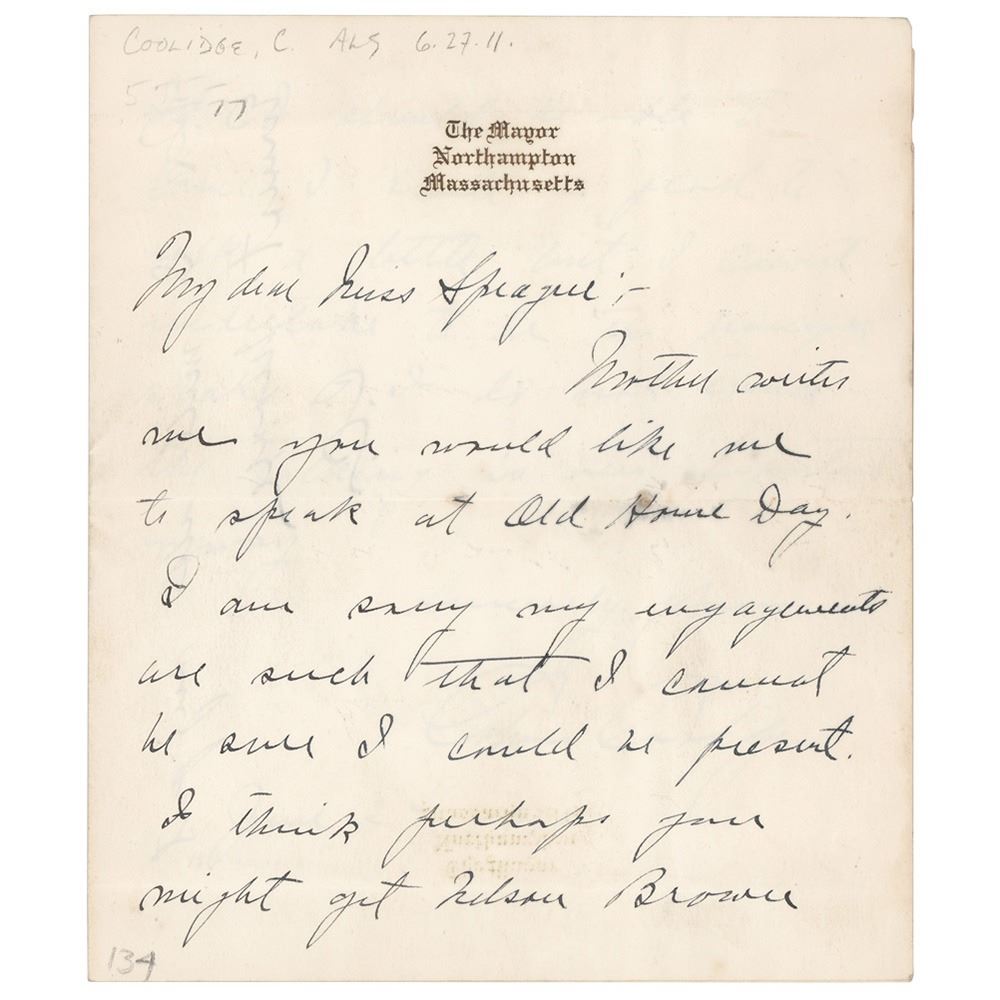 COOLIDGE, C. ALS 6.27.11.
77
The Mayor
Northampton
Massachusetts
My dear Miss Sprague;—
Mother writes
me you would like me
to speak at Old Home Day.
I am sorry my engagements
are such that I cannot
be sure I could be present.
I think perhaps you
might get Nelson Brown
134